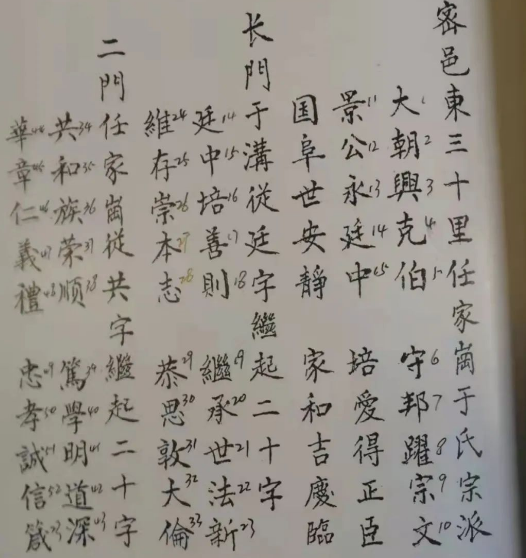 密邑東三十里任家崗于氏宗派
大1朝2興3克4伯5 守6邦7躍8宗9文10
景11公12永13廷14中15 培愛得正臣
国阜世安靜 家和吉慶臨
长門于溝從廷字繼起二十字
廷14中15培16善17則18 繼19承20世21法22新23
維24存25崇26本27志28 恭29思30敦31大32倫33
二門任家崗從共字繼起二十字
共34和35族36荣37順38 篤39學40明41道42深43
華44章45仁46義47禮48 忠49孝50誠51信52箴53